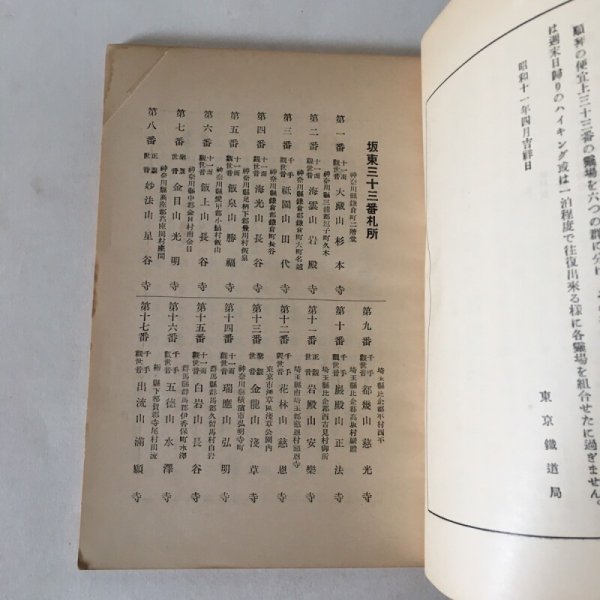 順拜の便宜上三十三番の靈場を六つの群に分け
は週末日歸りのハイキング或は一泊程度で往復出來る樣に各靈場を組合せたに過ぎません。
昭和十一年四月吉祥日
東京鐵道局
坂東三十三番札所
神奈川縣鎌倉郡鎌倉町二階堂
第一番 十一面觀世音 大藏山杉本寺
神奈川縣三浦郡逗子町久木
第二番 十一面觀世音 海雲山岩殿寺
神奈川縣鎌倉郡鎌倉町大町名越
第三番 千手觀世音 祇園山田代寺
神奈川縣鎌倉郡鎌倉町長谷
第四番 十一面觀世音 海光山長谷寺
神奈川縣足柄下郡豊川村飯泉
第五番 十一面觀世音 飯泉山勝福寺
神奈川縣愛甲郡小鮎村飯山
第六番 十一面觀世音 飯上山長谷寺
神奈川縣中郡金目村南金目
第七番 聖觀世音 金目山光明寺
神奈川縣高座郡座間村座間
第八番 正觀世音 妙法山星谷寺
埼玉縣比企郡平村西平
第九番 千手觀世音 都幾山慈光寺
埼玉縣比企郡高坂村巖殿
第十番 千手觀世音 巖殿山正法寺
埼玉縣比企郡西吉見村御所
第十一番 正觀世音 岩殿山安樂寺
埼玉縣南埼玉郡慈恩寺村慈恩寺
第十二番 千手觀世音 花林山慈恩寺
東京市淺草區淺草公園內
第十三番 聖觀世音 金龍山淺草寺
神奈川縣橫濱市弘明寺町
第十四番 十一面觀世音 瑞應山弘明寺
群馬縣群馬郡久留馬村白岩
第十五番 十一面觀世音 白岩山長谷寺
群馬縣群馬郡伊香保町水澤
第十六番 千手觀世音 五德山水澤寺
栃木縣下都賀郡寺尾村出流
第十七番 千手觀世音 出流山滿願寺